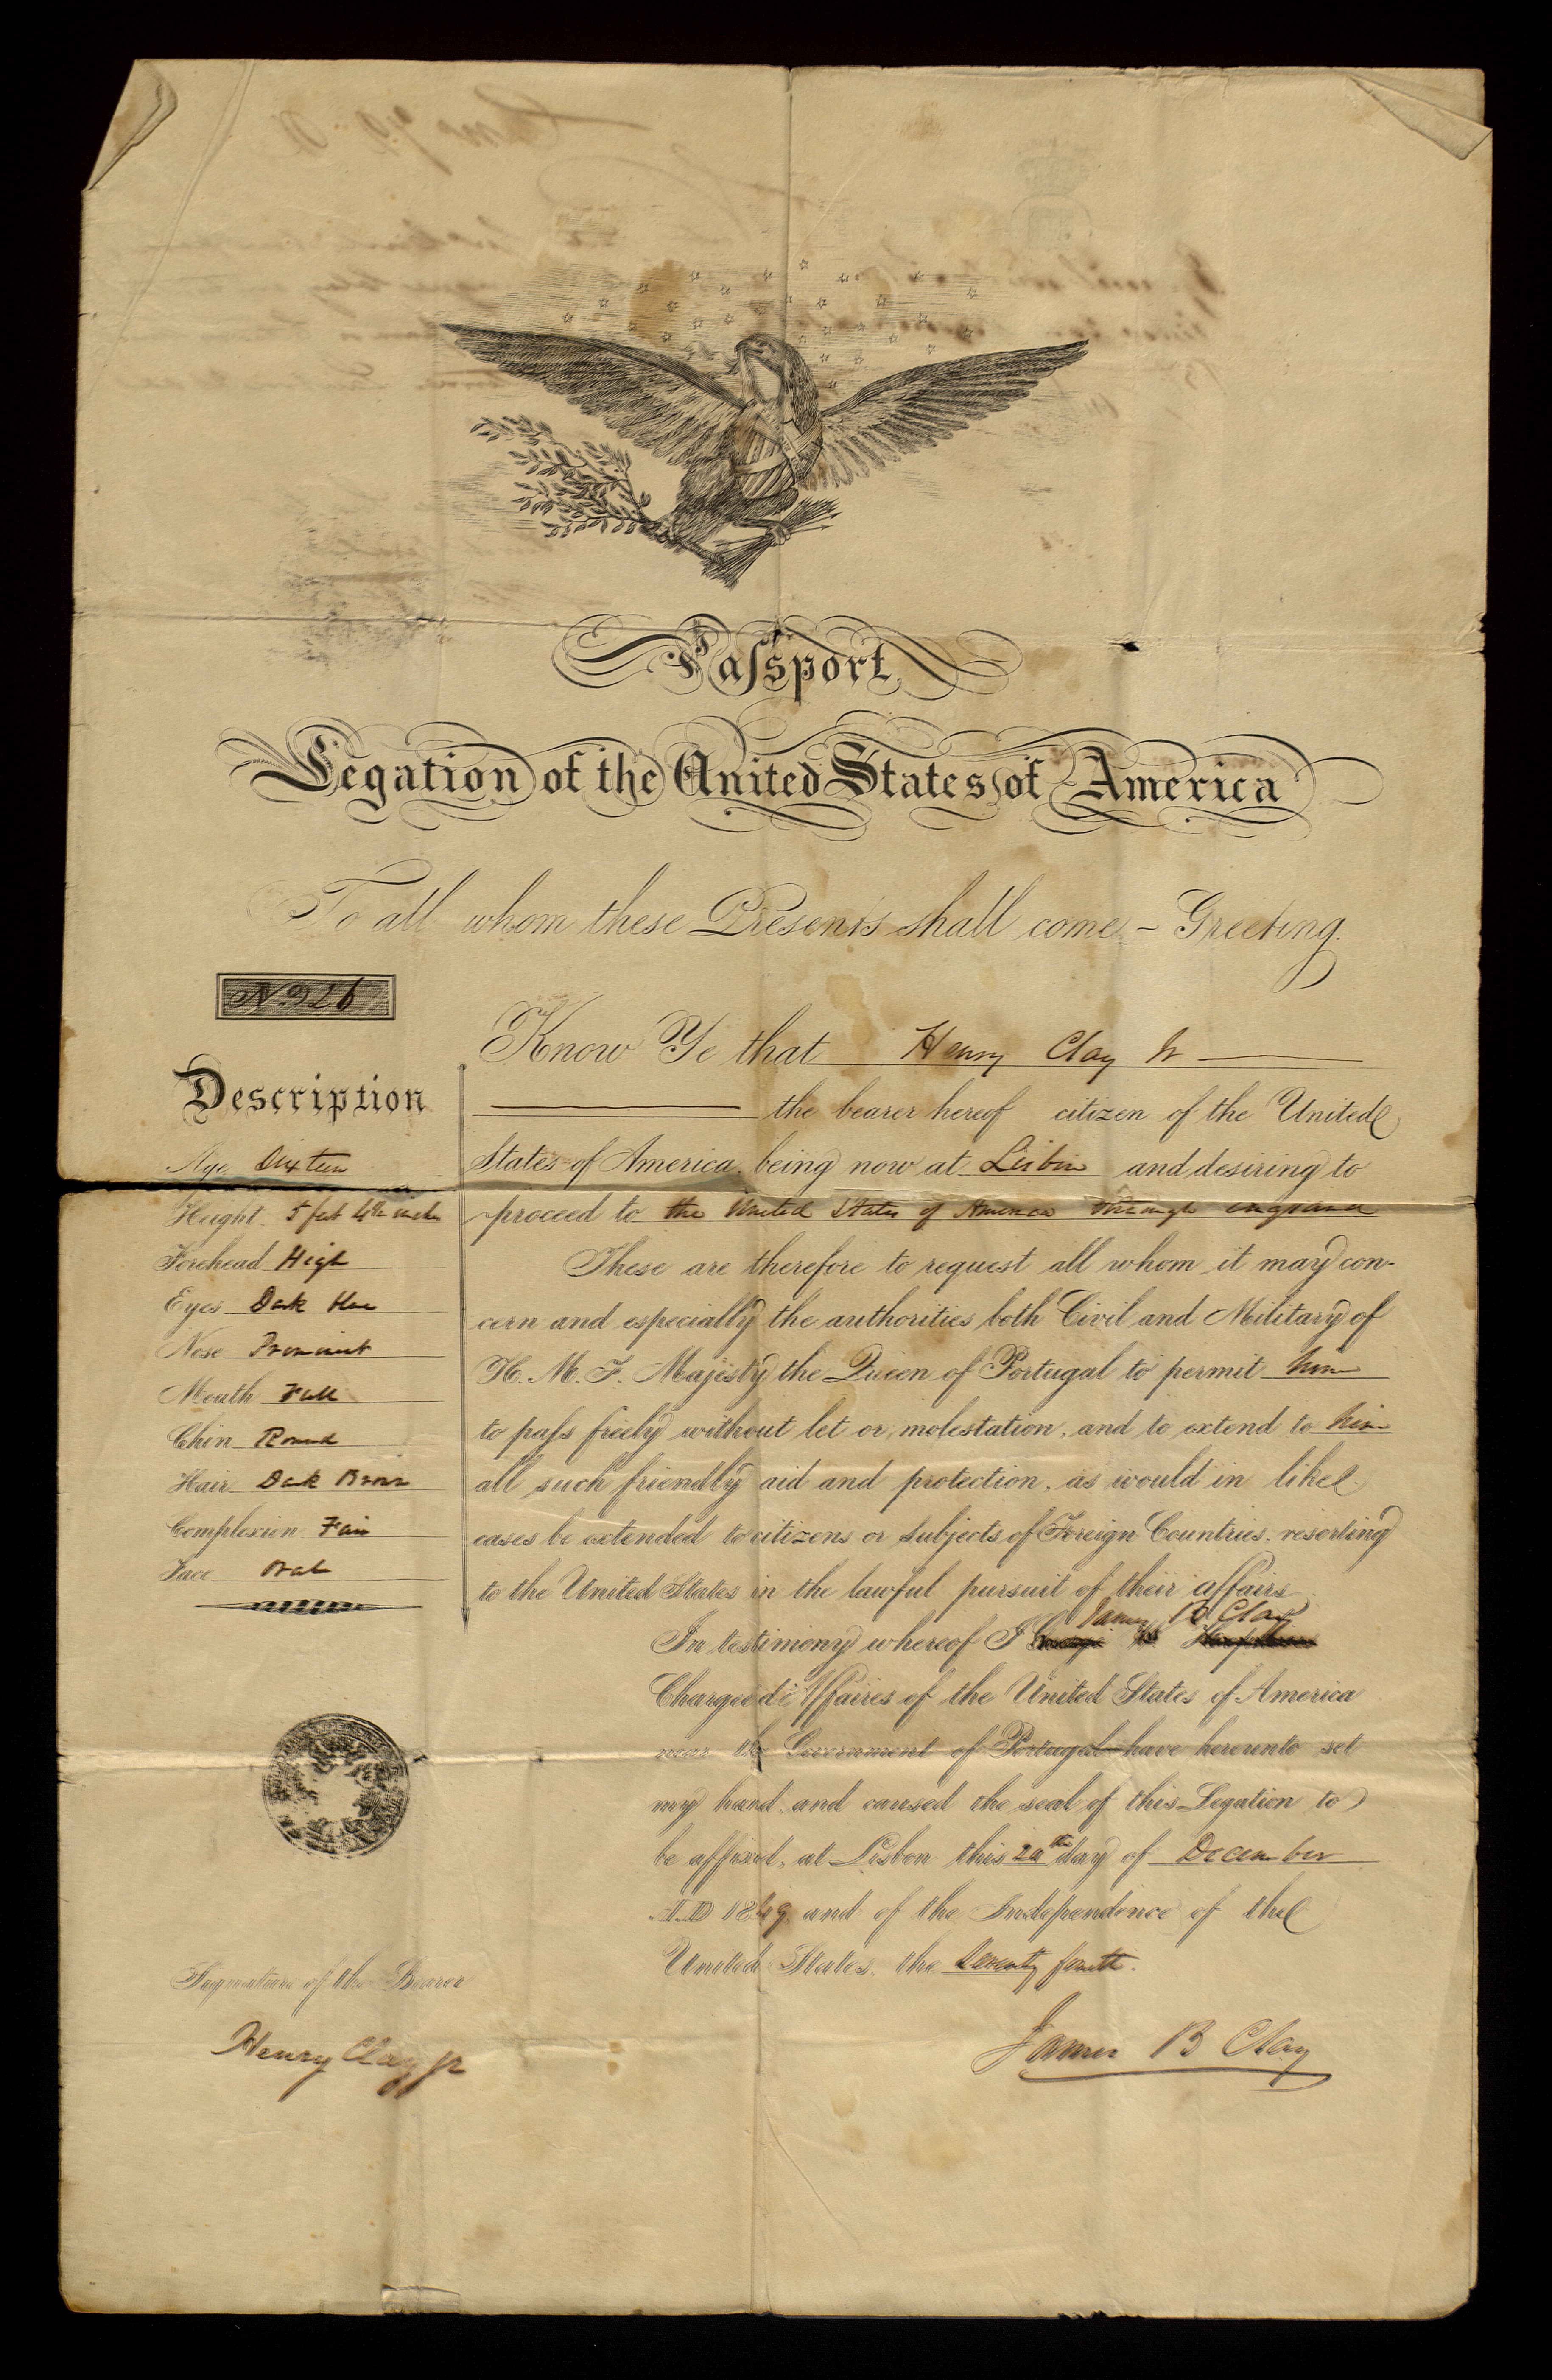 Paſsport
Legation of the United States of America
To all whom these Presents shall come – Greeting.
No. 26
Description
Age Sixteen
Height 5 feet 4 inches
Forehead High
Eyes Dark blue
Nose Prominent
Mouth Full
Chin Round
Hair Dark Brown
Complexion Fair
Face Oval
Know Ye that Henry Clay Jr
the bearer hereof citizen of the United
States of America being now at Lisbon and desiring to
proceed to the United States of America through england
These are therefore to request all whom it may con-
cern and especially the authorities both Civil and Military of
H. M. F. Majesty the Queen of Portugal to permit him
to paſs freely without let or molestation, and to extend to him
all such friendly aid and protection, as would in like
cases be extended to citizens or subjects of Foreign Countries, resorting
to the United States in the lawful pursuit of their affairs
In testimony whereof I James B Clay
Chargé d'Affaires of the United States of America
near the Government of Portugal have hereunto set
my hand, and caused the seal of this Legation to
be affixed, at Lisbon this day of December
A.D 1849 and of the Independence of the
United States, the Seventy fourth.
Signature of the Bearer
Henry Clay Jr
James B Clay